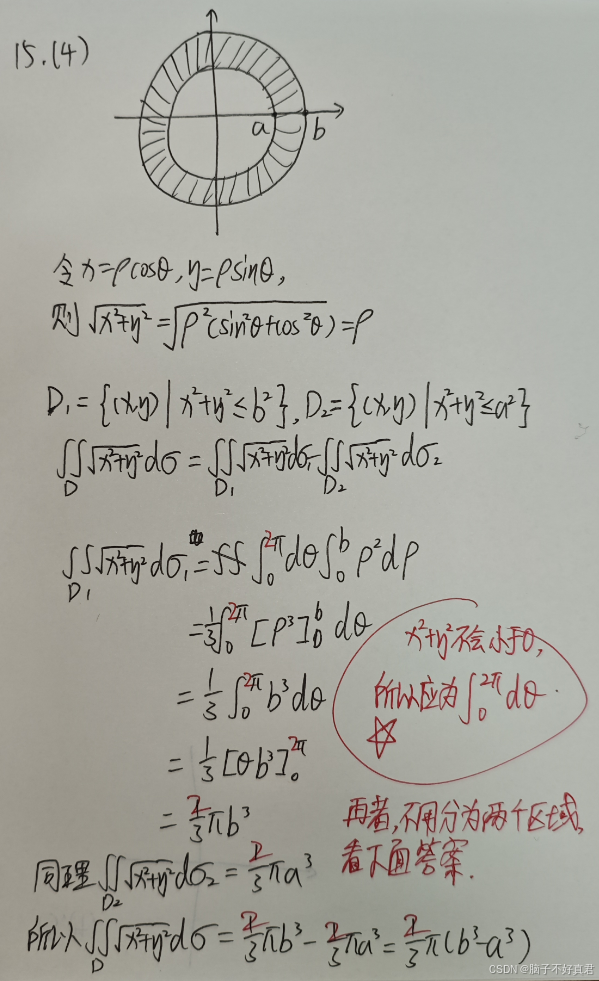 15.(4)
a b
令x=ρcosθ,y=ρsinθ,
则√(x²+y²)=√(ρ²(sin²θ+cos²θ))=ρ
D₁={(x,y)|x²+y²≤b²},D₂={(x,y)|x²+y²≤a²}
∬_D √(x²+y²)dσ=∬_D₁ √(x²+y²)dσ₁-∬_D₂ √(x²+y²)dσ₂
∬_D₁ √(x²+y²)dσ₁=∫₀^2π dθ∫₀^b ρ²dρ
=1/3∫₀^2π [ρ³]₀^b dθ
=1/3∫₀^2π b³dθ
=1/3[θb³]₀^2π
=2/3πb³
x²+y²不会小于0,
所以应为∫₀^2π dθ.
☆
再者,不用分为两个区域,
看下面答案.
同理∬_D₂ √(x²+y²)dσ₂=2/3πa³
所以∬_D √(x²+y²)dσ=2/3πb³-2/3πa³=2/3π(b³-a³)
CSDN @脑子不好真君